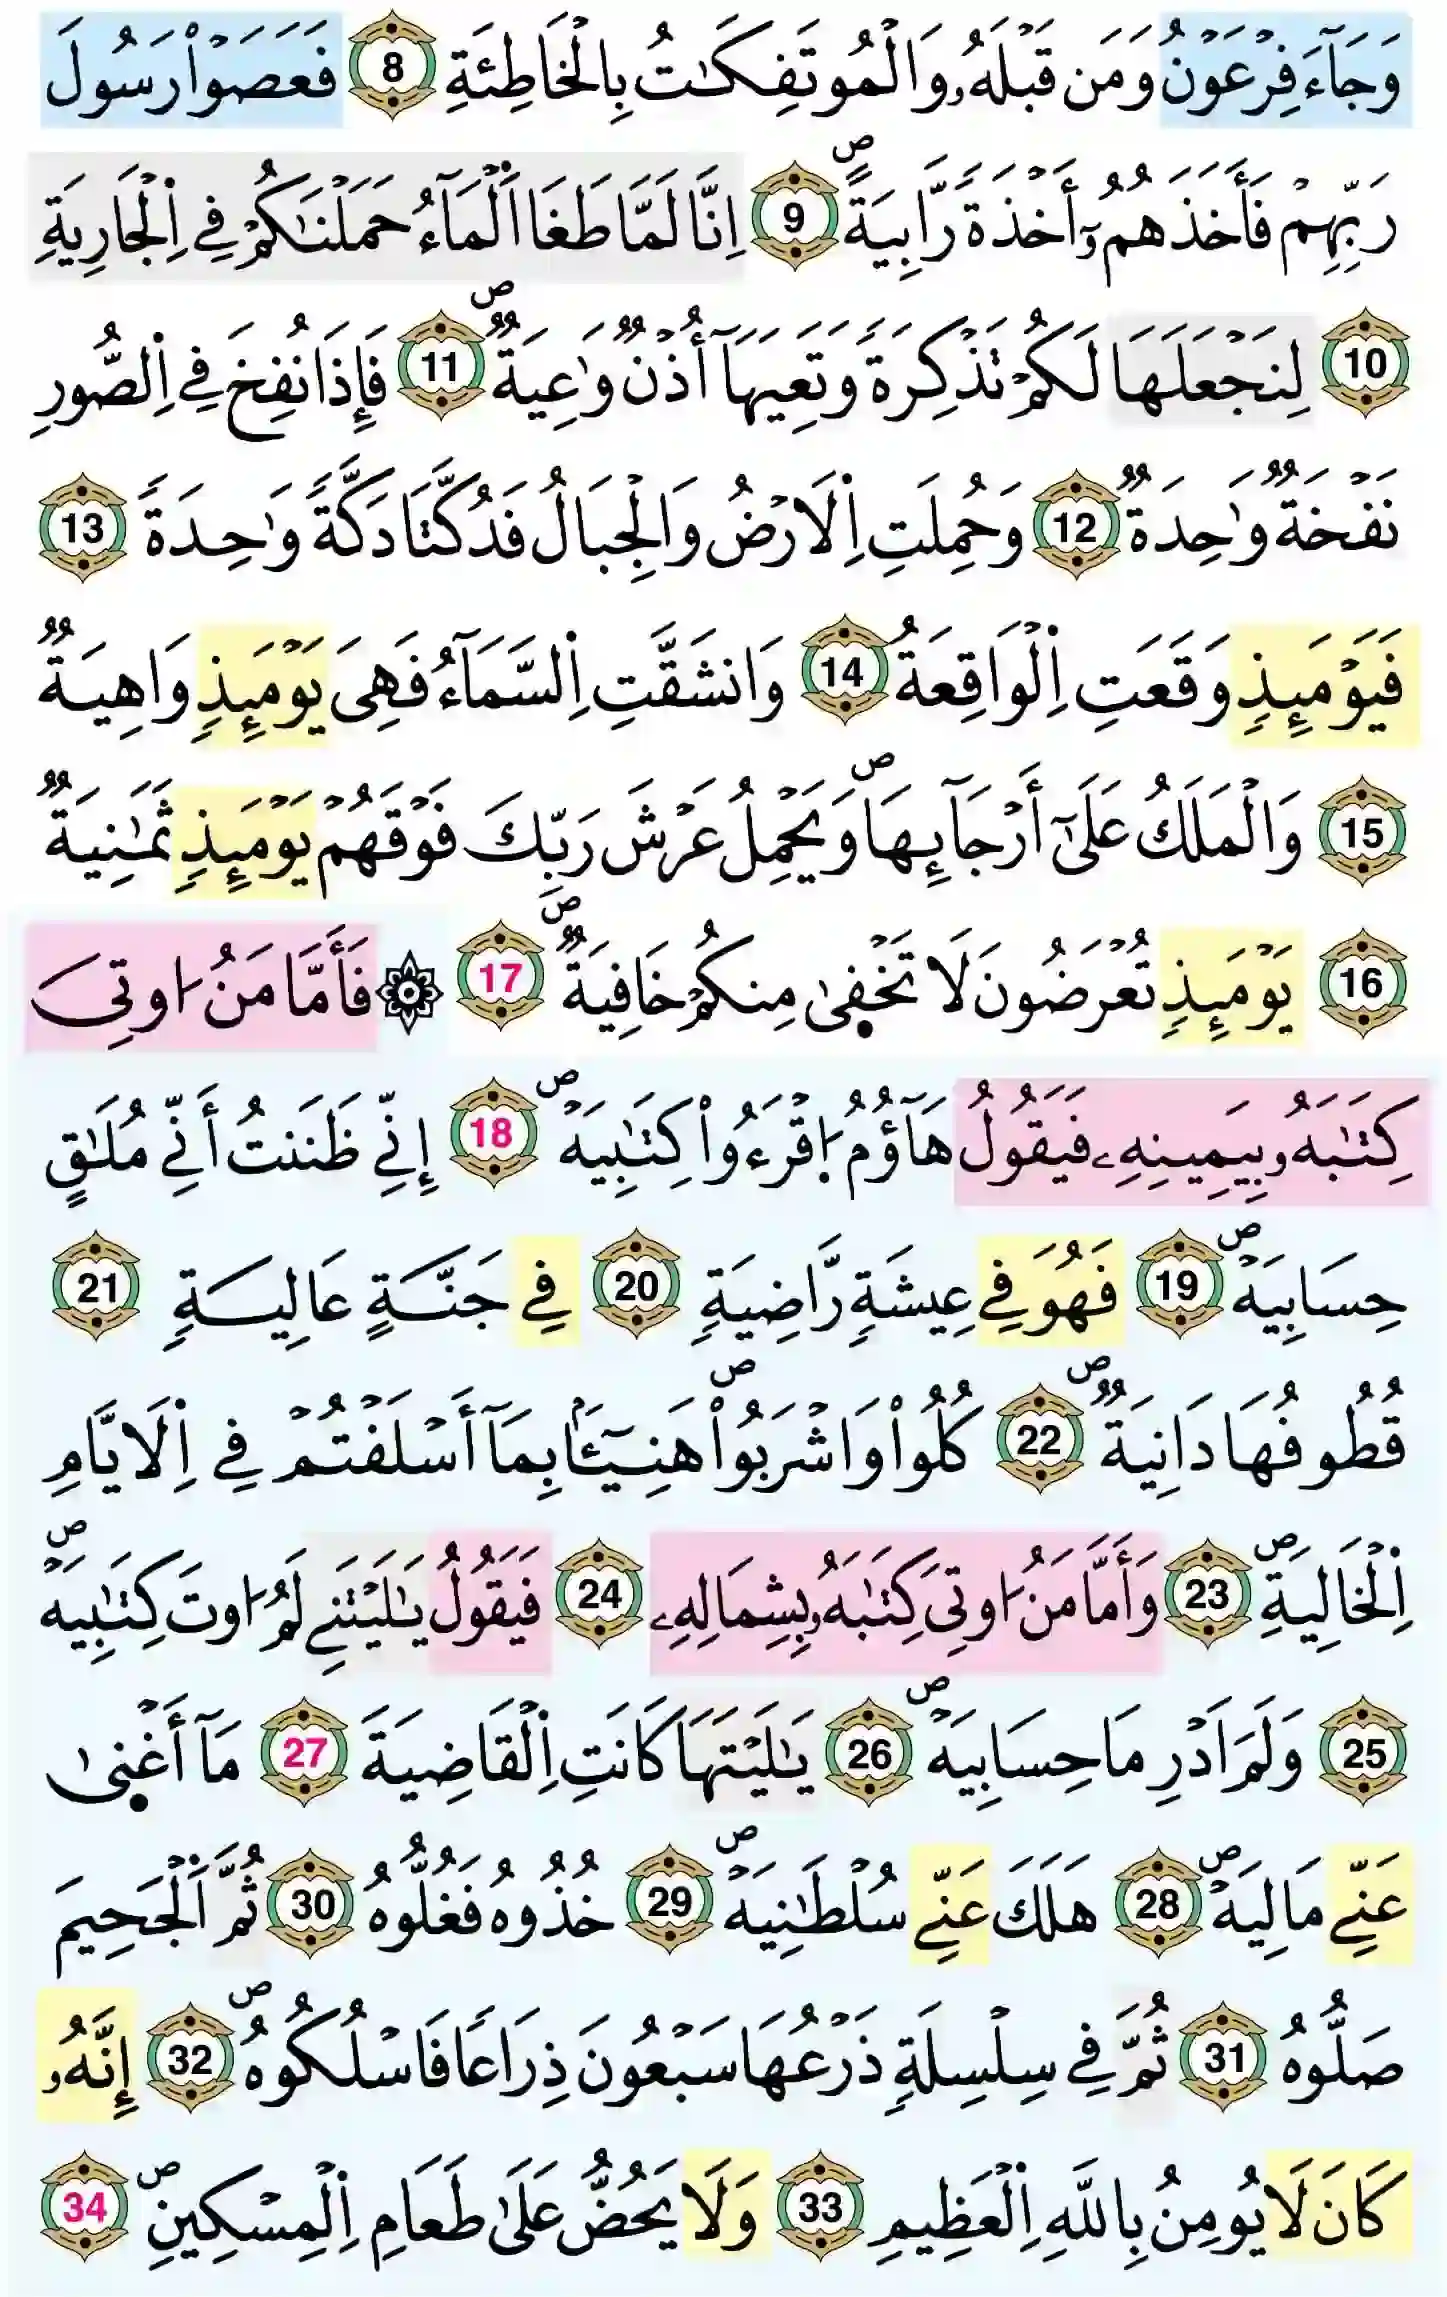 وَجَآءَ فِرْعَوْنُ وَمَن قَبْلَهُۥ وَالْمُوتَفِكَٰتُ بِالْخَاطِئَةِ 8 فَعَصَوْاْ رَسُولَ
رَبِّهِمْ فَأَخَذَهُمُۥٓ أَخْذَةً رَّابِيَةً ۖ 9 اِنَّا لَمَّا طَغَا اَ۬لْمَآءُ حَمَلْنَٰكُمْ فِے اِ۬لْجَارِيَةِ
10 لِنَجْعَلَهَا لَكُمْ تَذْكِرَةً وَتَعِيَهَآ أُذْنٌ وَٰعِيَةٌ ۖ 11 فَإِذَا نُفِخَ فِے اِ۬لصُّورِ
نَفْخَةٌ وَٰحِدَةٌ 12 وَحُمِلَتِ اِ۬لَارْضُ وَالْجِبَالُ فَدُكَّتَا دَكَّةً وَٰحِدَةً 13
فَيَوْمَئِذٍ وَقَعَتِ اِ۬لْوَاقِعَةُ 14 وَانشَقَّتِ اِ۬لسَّمَآءُ فَهِىَ يَوْمَئِذٍ وَاهِيَةٌ
15 وَالْمَلَكُ عَلَىٰٓ أَرْجَآئِهَا ۖ وَيَحْمِلُ عَرْشَ رَبِّكَ فَوْقَهُمْ يَوْمَئِذٍ ثَمَٰنِيَةٌ
16 يَوْمَئِذٍ تُعْرَضُونَ لَا تَخْف۪ىٰ مِنكُمْ خَافِيَةٌ ۖ 17 ۞ فَأَمَّا مَنُ ا۟وتِىَ
كِتَٰبَهُۥ بِيَمِينِهِۦ فَيَقُولُ هَآؤُمُ اُ۪قْرَءُواْ كِتَٰبِيَهْ ۖ 18 إِنِّے ظَنَنتُ أَنِّے مُلَٰقٍ
حِسَابِيَهْ ۖ 19 فَهُوَ فِے عِيشَةٍ رَّاضِيَةٍ 20 فِے جَنَّةٍ عَالِيَةٍ 21
قُطُوفُهَا دَانِيَةٌ ۖ 22 كُلُواْ وَاشْرَبُواْ ۖ هَنِيٓـَٔاۢ بِمَآ أَسْلَفْتُمْ فِے اِ۬لَايَّامِ
اِ۬لْخَالِيَةِ ۖ 23 وَأَمَّا مَنُ ا۟وتِىَ كِتَٰبَهُۥ بِشِمَالِهِۦ 24 فَيَقُولُ يَٰلَيْتَنِے لَمُ ا۟وتَ كِتَٰبِيَهْ ۖ
25 وَلَمَ اَدْرِ مَا حِسَابِيَهْ ۖ 26 يَٰلَيْتَهَا كَانَتِ اِ۬لْقَاضِيَةَ 27 مَآ أَغْن۪ىٰ
عَنِّے مَالِيَهْ ۖ 28 هَلَكَ عَنِّے سُلْطَٰنِيَهْ ۖ 29 خُذُوهُ فَغُلُّوهُ 30 ثُمَّ اَ۬لْجَحِيمَ
صَلُّوهُ 31 ثُمَّ فِے سِلْسِلَةٍ ذَرْعُهَا سَبْعُونَ ذِرَاعًا فَاسْلُكُوهُ ۖ 32 إِنَّهُۥ
كَانَ لَا يُومِنُ بِاللَّهِ اِ۬لْعَظِيمِ 33 وَلَا يَحُضُّ عَلَىٰ طَعَامِ اِ۬لْمِسْكِينِ ۖ 34